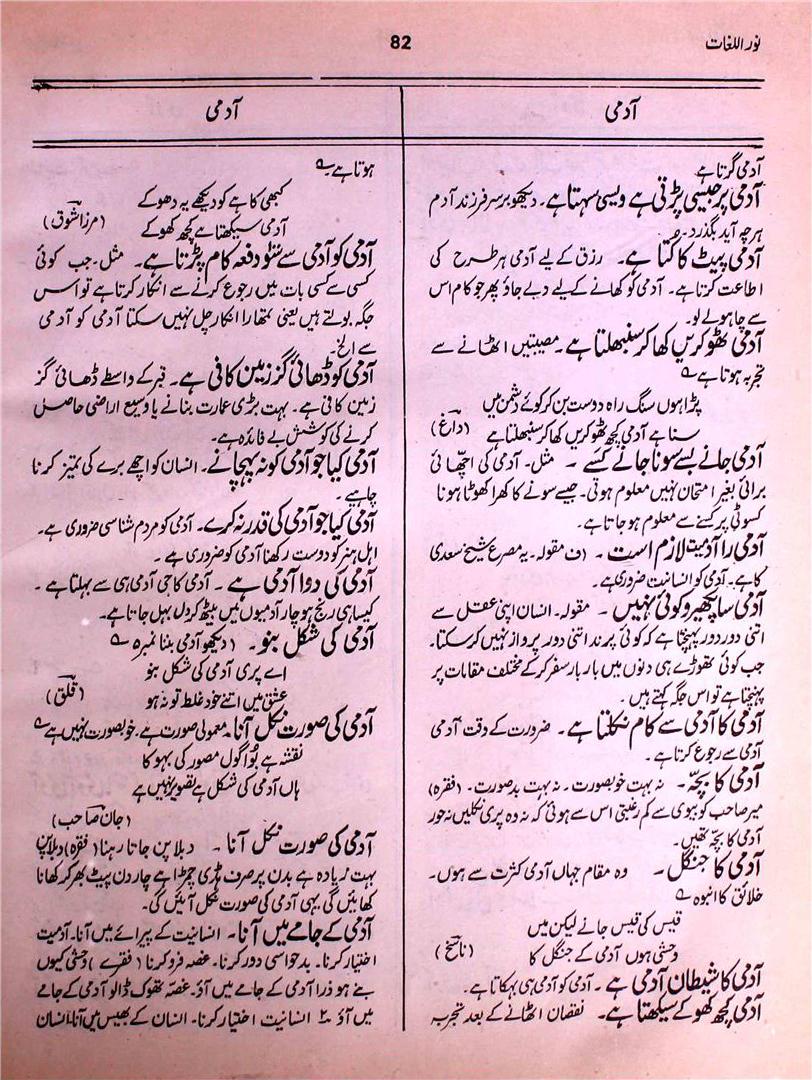 نور اللغات
82
آدمی
آدمی
آدمی گرتا ہے
آدمی پر جیسی پڑتی ہے ویسی سہتا ہے۔ دیکھو بر سر فرزند آدم
ہرچہ آید بگذرد۔
آدمی پیٹ کا کتا ہے۔ رزق کے لیے آدمی ہر طرح کی
اطاعت کرتا ہے۔ آدمی کو کھانے کے لیے دیے جاؤ پھر جو کام اس
سے چاہو لے لو۔
آدمی ٹھوکریں کھا کر سنبھلتا ہے۔ مصیبتیں اٹھانے سے
تجربہ ہوتا ہے ؎
پڑا ہوں سنگ راہ دوست بن کر کوئے دشمن میں
سنا ہے آدمی کچھ ٹھوکریں کھا کر سنبھلتا ہے (داغ)
آدمی جانے بسے سونا جانے کسے۔ مثل۔ آدمی کی اچھائی
برائی بغیر امتحان نہیں معلوم ہوتی۔ جیسے سونے کا کھرا کھوٹا ہونا
کسوٹی پر کسنے سے معلوم ہو جاتا ہے۔
آدمی را آدمیت لازم است۔ (ف مقولہ۔ یہ مصرع شیخ سعدی
کا ہے۔ آدمی کو انسانیت ضروری ہے۔
آدمی سا پکھیرو کوئی نہیں۔ مقولہ۔ انسان اپنی عقل سے
اتنی دور دور پہنچتا ہے کہ کوئی پرند اتنی دور پرواز نہیں کر سکتا۔
جب کوئی تھوڑے ہی دنوں میں بار بار سفر کر کے مختلف مقامات پر
پہنچتا ہے تو اس جگہ کہتے ہیں۔
آدمی کا آدمی سے کام نکلتا ہے۔ ضرورت کے وقت آدمی
آدمی سے رجوع کرتا ہے۔
آدمی کا بچّہ۔ نہ بہت خوبصورت۔ نہ بہت بدصورت۔ (فقرہ)
میر صاحب کو بیوی سے کم رغبتی اس سے ہوئی کہ نہ وہ پری نکلیں نہ حور
آدمی کا بچّہ تھیں۔
آدمی کا جنگل۔ وہ مقام جہاں آدمی کثرت سے ہوں۔
خلائق کا انبوہ ؎
قیس کی قیس جانے لیکن میں
وحشی ہوں آدمی کے جنگل کا (ناسخ)
آدمی کا شیطان آدمی ہے۔ آدمی کو آدمی ہی بہکاتا ہے۔
آدمی کچھ کھو کے سیکھتا ہے۔ نقصان اٹھانے کے بعد تجربہ
ہوتا ہے ؎
کبھی کاہے کو دیکھے یہ دھوکے
آدمی سیکھتا ہے کچھ کھو کے (مرزا شوق)
آدمی کو آدمی سے سو دفعہ کام پڑتا ہے۔ مثل۔ جب کوئی
کسی سے کسی بات میں رجوع کرنے سے انکار کرتا ہے تو اس
جگہ بولتے ہیں یعنی تمھارا انکار چل نہیں سکتا آدمی کو آدمی
سے الخ۔
آدمی کو ڈھائی گز زمین کافی ہے۔ قبر کے واسطے ڈھائی گز
زمین کافی ہے۔ بہت بڑی عمارت بنانے یا وسیع اراضی حاصل
کرنے کی کوشش بے فائدہ ہے۔
آدمی کیا جو آدمی کو نہ پہچانے۔ انسان کو اچھے برے کی تمیز کرنا
چاہیے۔
آدمی کیا جو آدمی کی قدر نہ کرے۔ آدمی کو مردم شناسی ضروری ہے۔
اہل ہنر کو دوست رکھنا آدمی کو ضروری ہے۔
آدمی کی دوا آدمی ہے۔ آدمی کا جی آدمی ہی سے بہلتا ہے۔
کیسا ہی رنج ہو چار آدمیوں میں بیٹھ کر دل بہل جاتا ہے۔
آدمی کی شکل بنو۔ (دیکھو آدمی بننا نمبر ۵ ؎
اے پری آدمی کی شکل بنو
عشق میں اتنے خود غلط تو نہ ہو (قلق)
آدمی کی صورت نکل آنا۔ معمولی صورت ہے۔ خوبصورت نہیں ہے ؎
نقشہ ہے بُوا گول مصور کی بہو کا
ہاں آدمی کی شکل ہے تصویر نہیں ہے
(جان صاحب)
آدمی کی صورت نکل آنا۔ دبلا پن جاتا رہنا (فقرہ) دبلاپن
بہت زیادہ ہے بدن پر صرف ہڈی چمڑا ہے چار دن پیٹ بھر کر کھانا
کھائیں گی یہی آدمی کی صورت نکل آئیں گی۔
آدمی کے جامے میں آنا۔ انسانیت کے پیرائے میں آنا۔ آدمیت
اختیار کرنا۔ بدحواسی دور کرنا۔ غصہ فرو کرنا (فقرے) وحشی کیوں
بنے ہو ذرا آدمی کے جامے میں آؤ۔ غصّہ تھوک ڈالو آدمی کے جامے
میں آؤ ۲۔ انسانیت اختیار کرنا۔ انسان کے بھیس میں آنا۔ انسان